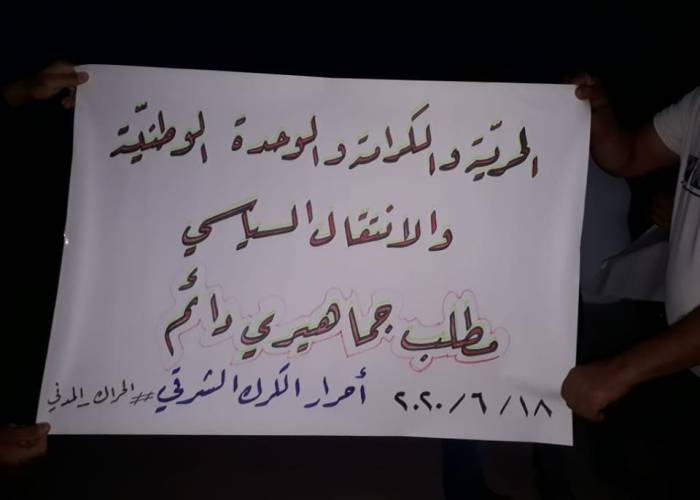 الحريّة والكرامة والوحدة الوطنيّة
والانتقال السياسي
مطلب جماهيري دائم
١٨/٦/٢٠٢٠ أحرار الكرك الشرقي #الحراك_المدني